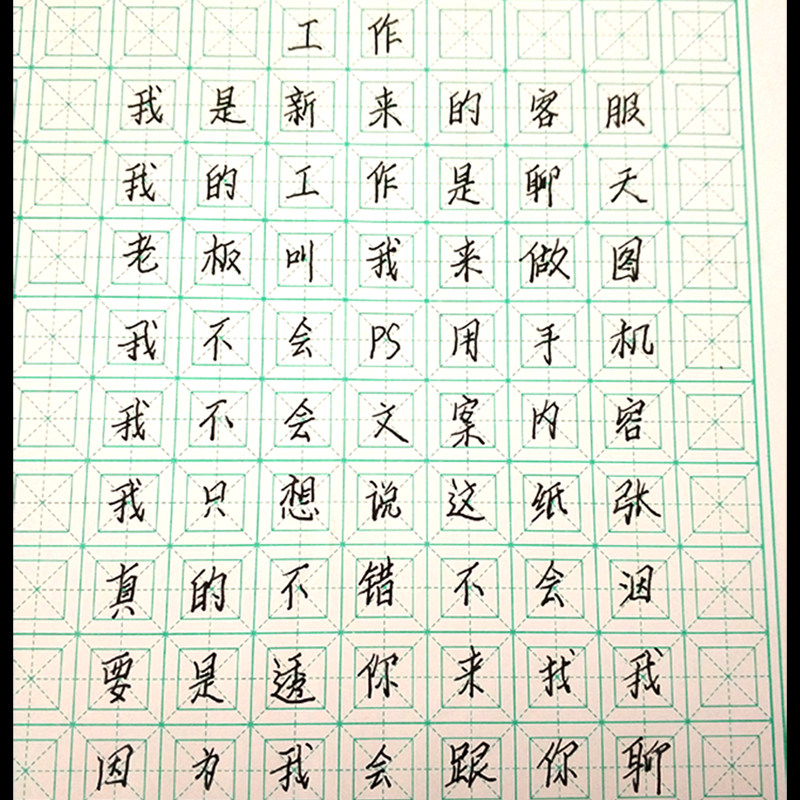 工作
我是新来的客服
我的工作是聊天
老板叫我来做图
我不会PS用手机
我不会文案内容
我只想说这纸张
真的不错不会洇
要是透你来找我
因为我会跟你聊